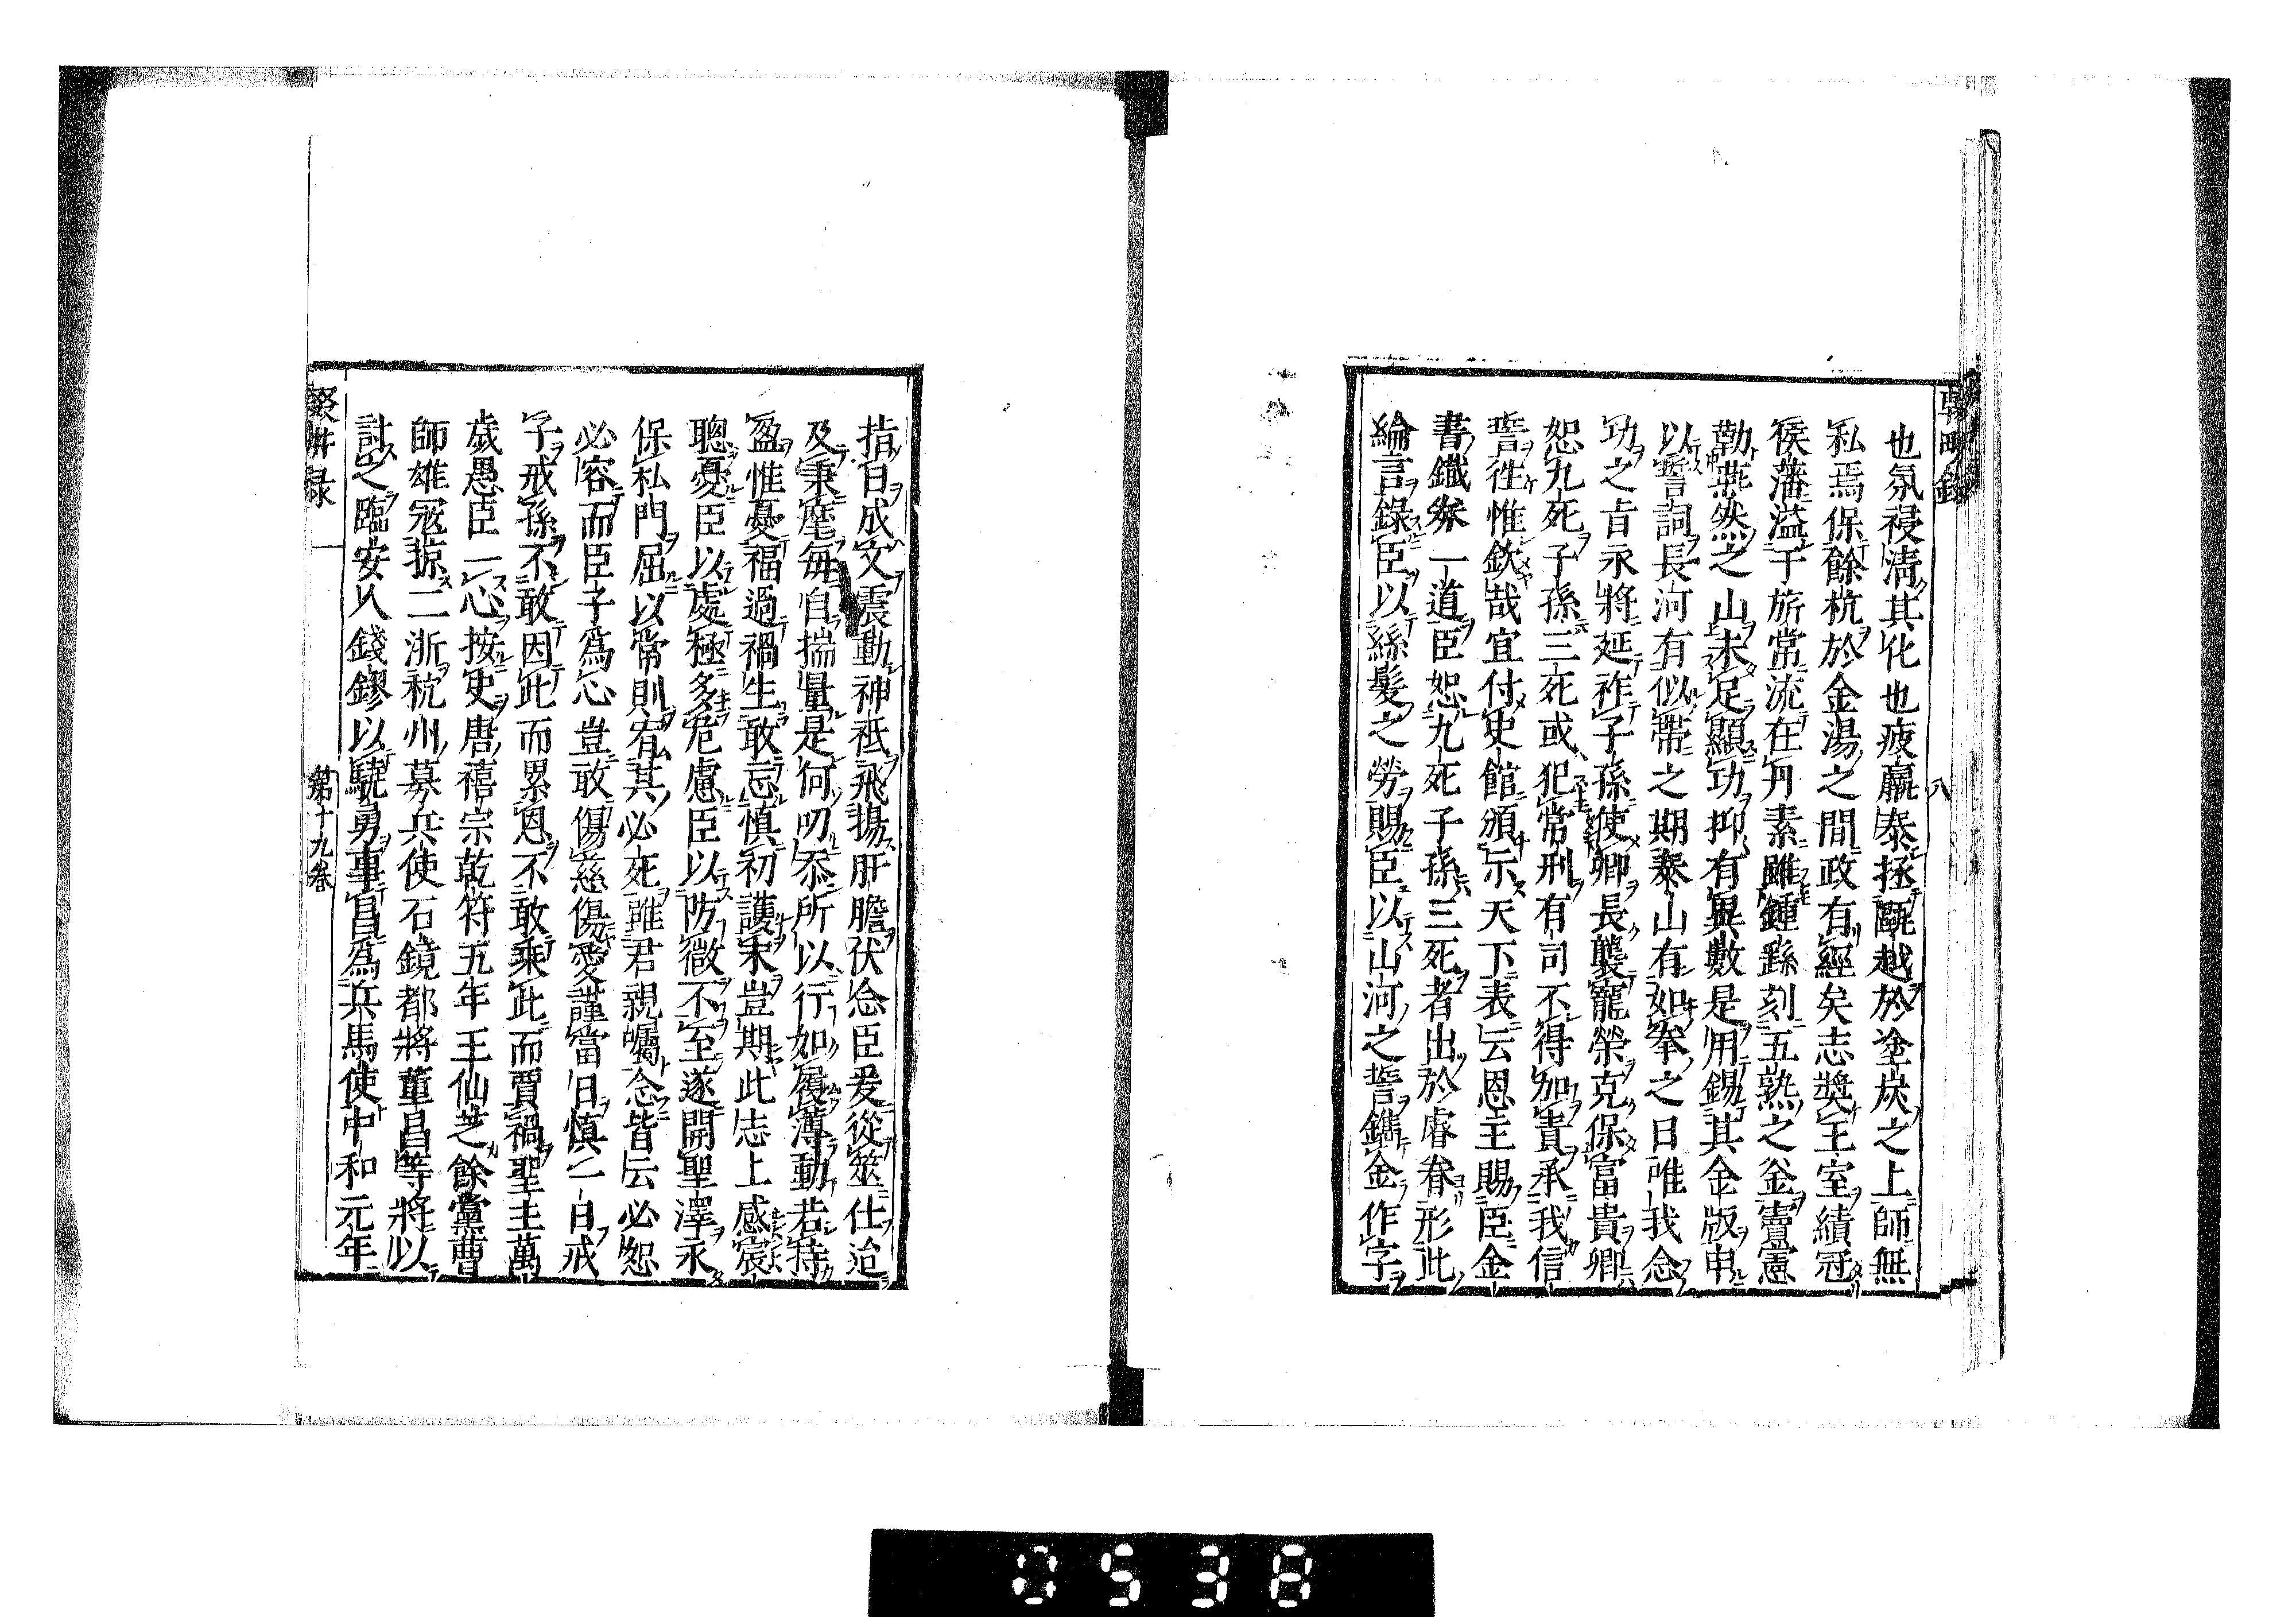 也氛祲清其化也疲羸泰拯甌越於塗炭之上師無
私焉保餘杭於金湯之間政有經矣志奬王室績冠
侯藩溢于旂常流在丹素雖鍾繇刻五熟之釜竇憲
勒燕然之山未足顯功抑有異數是用錫其金版申
以誓詞長河有似帶之期泰山有如拳之日唯我念
功之旨永將延祚子孫使卿長襲寵榮克保富貴卿
恕九死子孫三死或犯常刑有司不得加責承我信
誓徃惟欽哉宜付史館頒示天下表云恩主賜臣金
書鐵券一道臣恕九死子孫三死者出於睿眷形此
綸言錄臣以絲髮之勞賜臣以山河之誓鐫金作字
八
指日成文震動神祇飛揚肝膽伏念臣爰從筮仕迨
及秉麾每自揣量是何叨忝所以行如履薄動若持
盈惟憂福過禍生敢忘慎初護末豈期此志上感宸
聰憂臣以處極多危慮臣以防微不至遂開聖澤永
保私門屈以常則宥其必死雖君親囑念皆云必恕
必容而臣子爲心豈敢傷慈傷愛謹當日慎一日戒
子戒孫不敢因此而累恩不敢乘此而賈禍聖主萬
歲愚臣一心按史唐禧宗乾符五年王仙芝餘黨曹
師雄寇掠二浙杭州募兵使石鏡都將董昌等將以
討之臨安人錢鏐以驍勇事昌爲兵馬使中和元年
輟耕録
第十九卷
0538